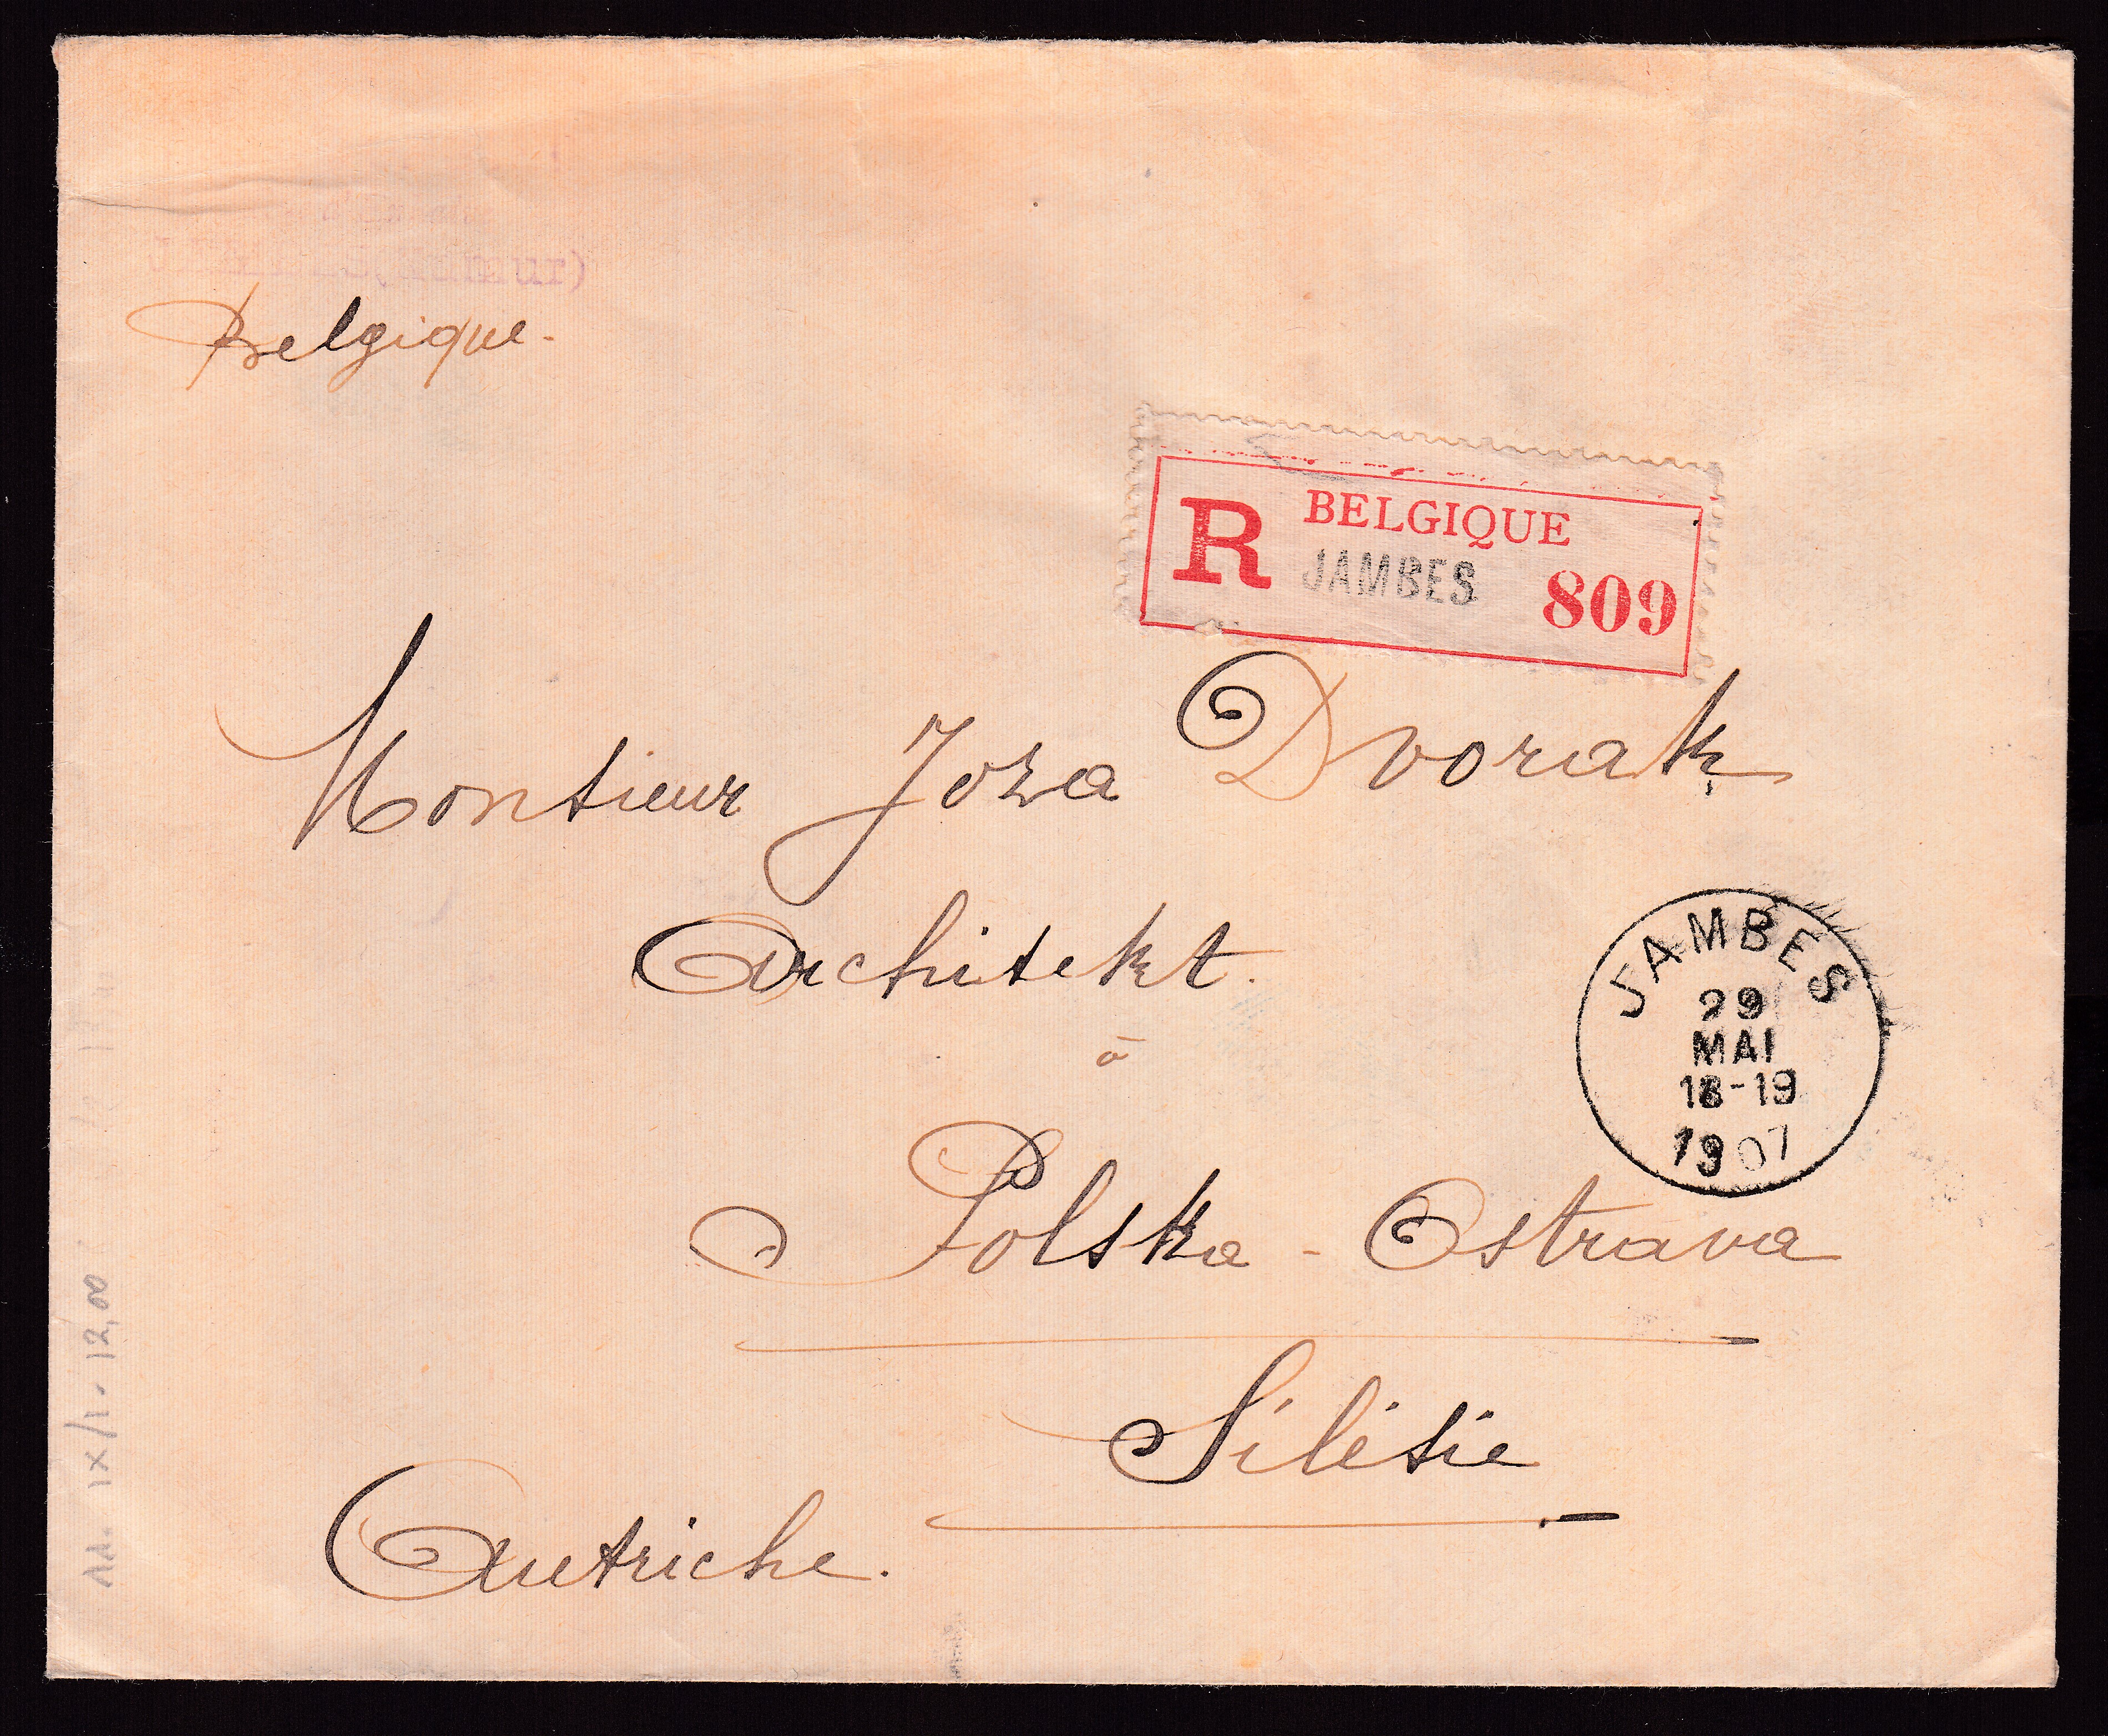 Belgique.
R BELGIQUE
JAMBES 809
Monsieur Joza Dvorak
Architekt.
à
Polska - Ostrava
Silésie
Autriche.
JAMBES
29
MAI
18-19
1907